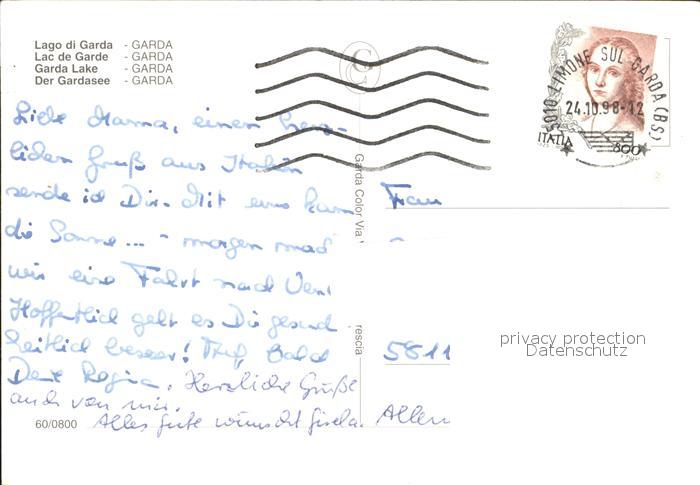 Lago di Garda - GARDA
Lac de Garde - GARDA
Garda Lake - GARDA
Der Gardasee - GARDA
25010 LIMONE SUL GARDA (BS)
24.10.98-12
ITALIA 800
Liebe Mama, einen herz-
lichen Gruß aus Italien
sende ich Dir. Mit uns kam
die Sonne ... - morgen mach
wir eine Fahrt nach Ven
Hoffentlich geht es Dir gesund
heitlich besser! Bald
Deine Regina. Herzliche Grüße
auch von mir.
Alles Gute wünscht Gisela.
Garda Color Via
rescia
Frau
5811
Allen
privacy protection
Datenschutz
60/0800